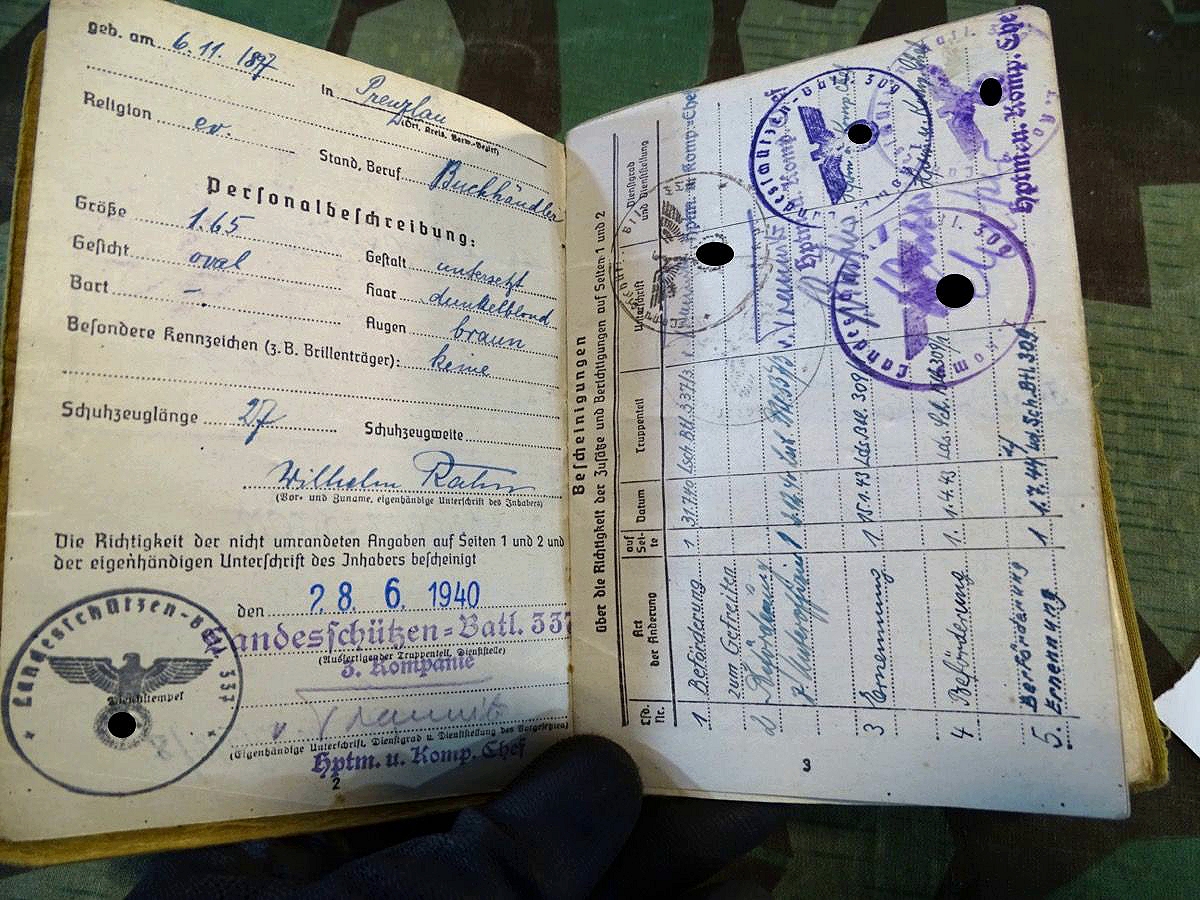 geb. am 6. 11. 1897 in Prenzlau
(Ort, Kreis, Verw.-Bezirk)
Religion ev. Stand, Beruf Buchhändler
Personalbeschreibung:
Größe 1.65 Gestalt untersetzt
Gesicht oval Haar dunkelblond
Bart - Augen braun
Besondere Kennzeichen (z. B. Brillenträger): keine
Schuhzeuglänge 27 Schuhzeugweite
Wilhelm Rahn
(Vor- und Zuname, eigenhändige Unterschrift des Inhabers)
Die Richtigkeit der nicht umrandeten Angaben auf Seiten 1 und 2 und
der eigenhändigen Unterschrift des Inhabers bescheinigt
den 28. 6. 1940
Landesschützen-Batl. 337
(Ausfertigender Truppenteil, Dienststelle)
3. Kompanie
(Eigenhändige Unterschrift, Dienstgrad u. Dienststellung des Vorgesetzten)
Hptm. u. Komp. Chef
Landesschützen-Batl. 337
Dienststempel
2
Bescheinigungen
über die Richtigkeit der Zusätze und Berichtigungen auf Seiten 1 und 2
Lfd. Nr. Art der Änderung auf Seite Datum Truppenteil Unterschrift Dienstgrad und Dienststellung
1 Beförderung 1 31.7.40 Lsch.Btl.337/3 Hptm. u. Komp.-Chef
zum Gefreiten
2 Beförderung
z. Unteroffizier 1
3 Ernennung 1 15.1.43 Lds.Btl. 309
4 Beförderung 1. 1.4.43 Lds.Sch.Btl.309/1
Beförderung
5. Ernennung 1 1.7.44 Ld.Sch.Btl.309
Landesschützen-Batl. 309
Hptm. u. Komp. Chef
3